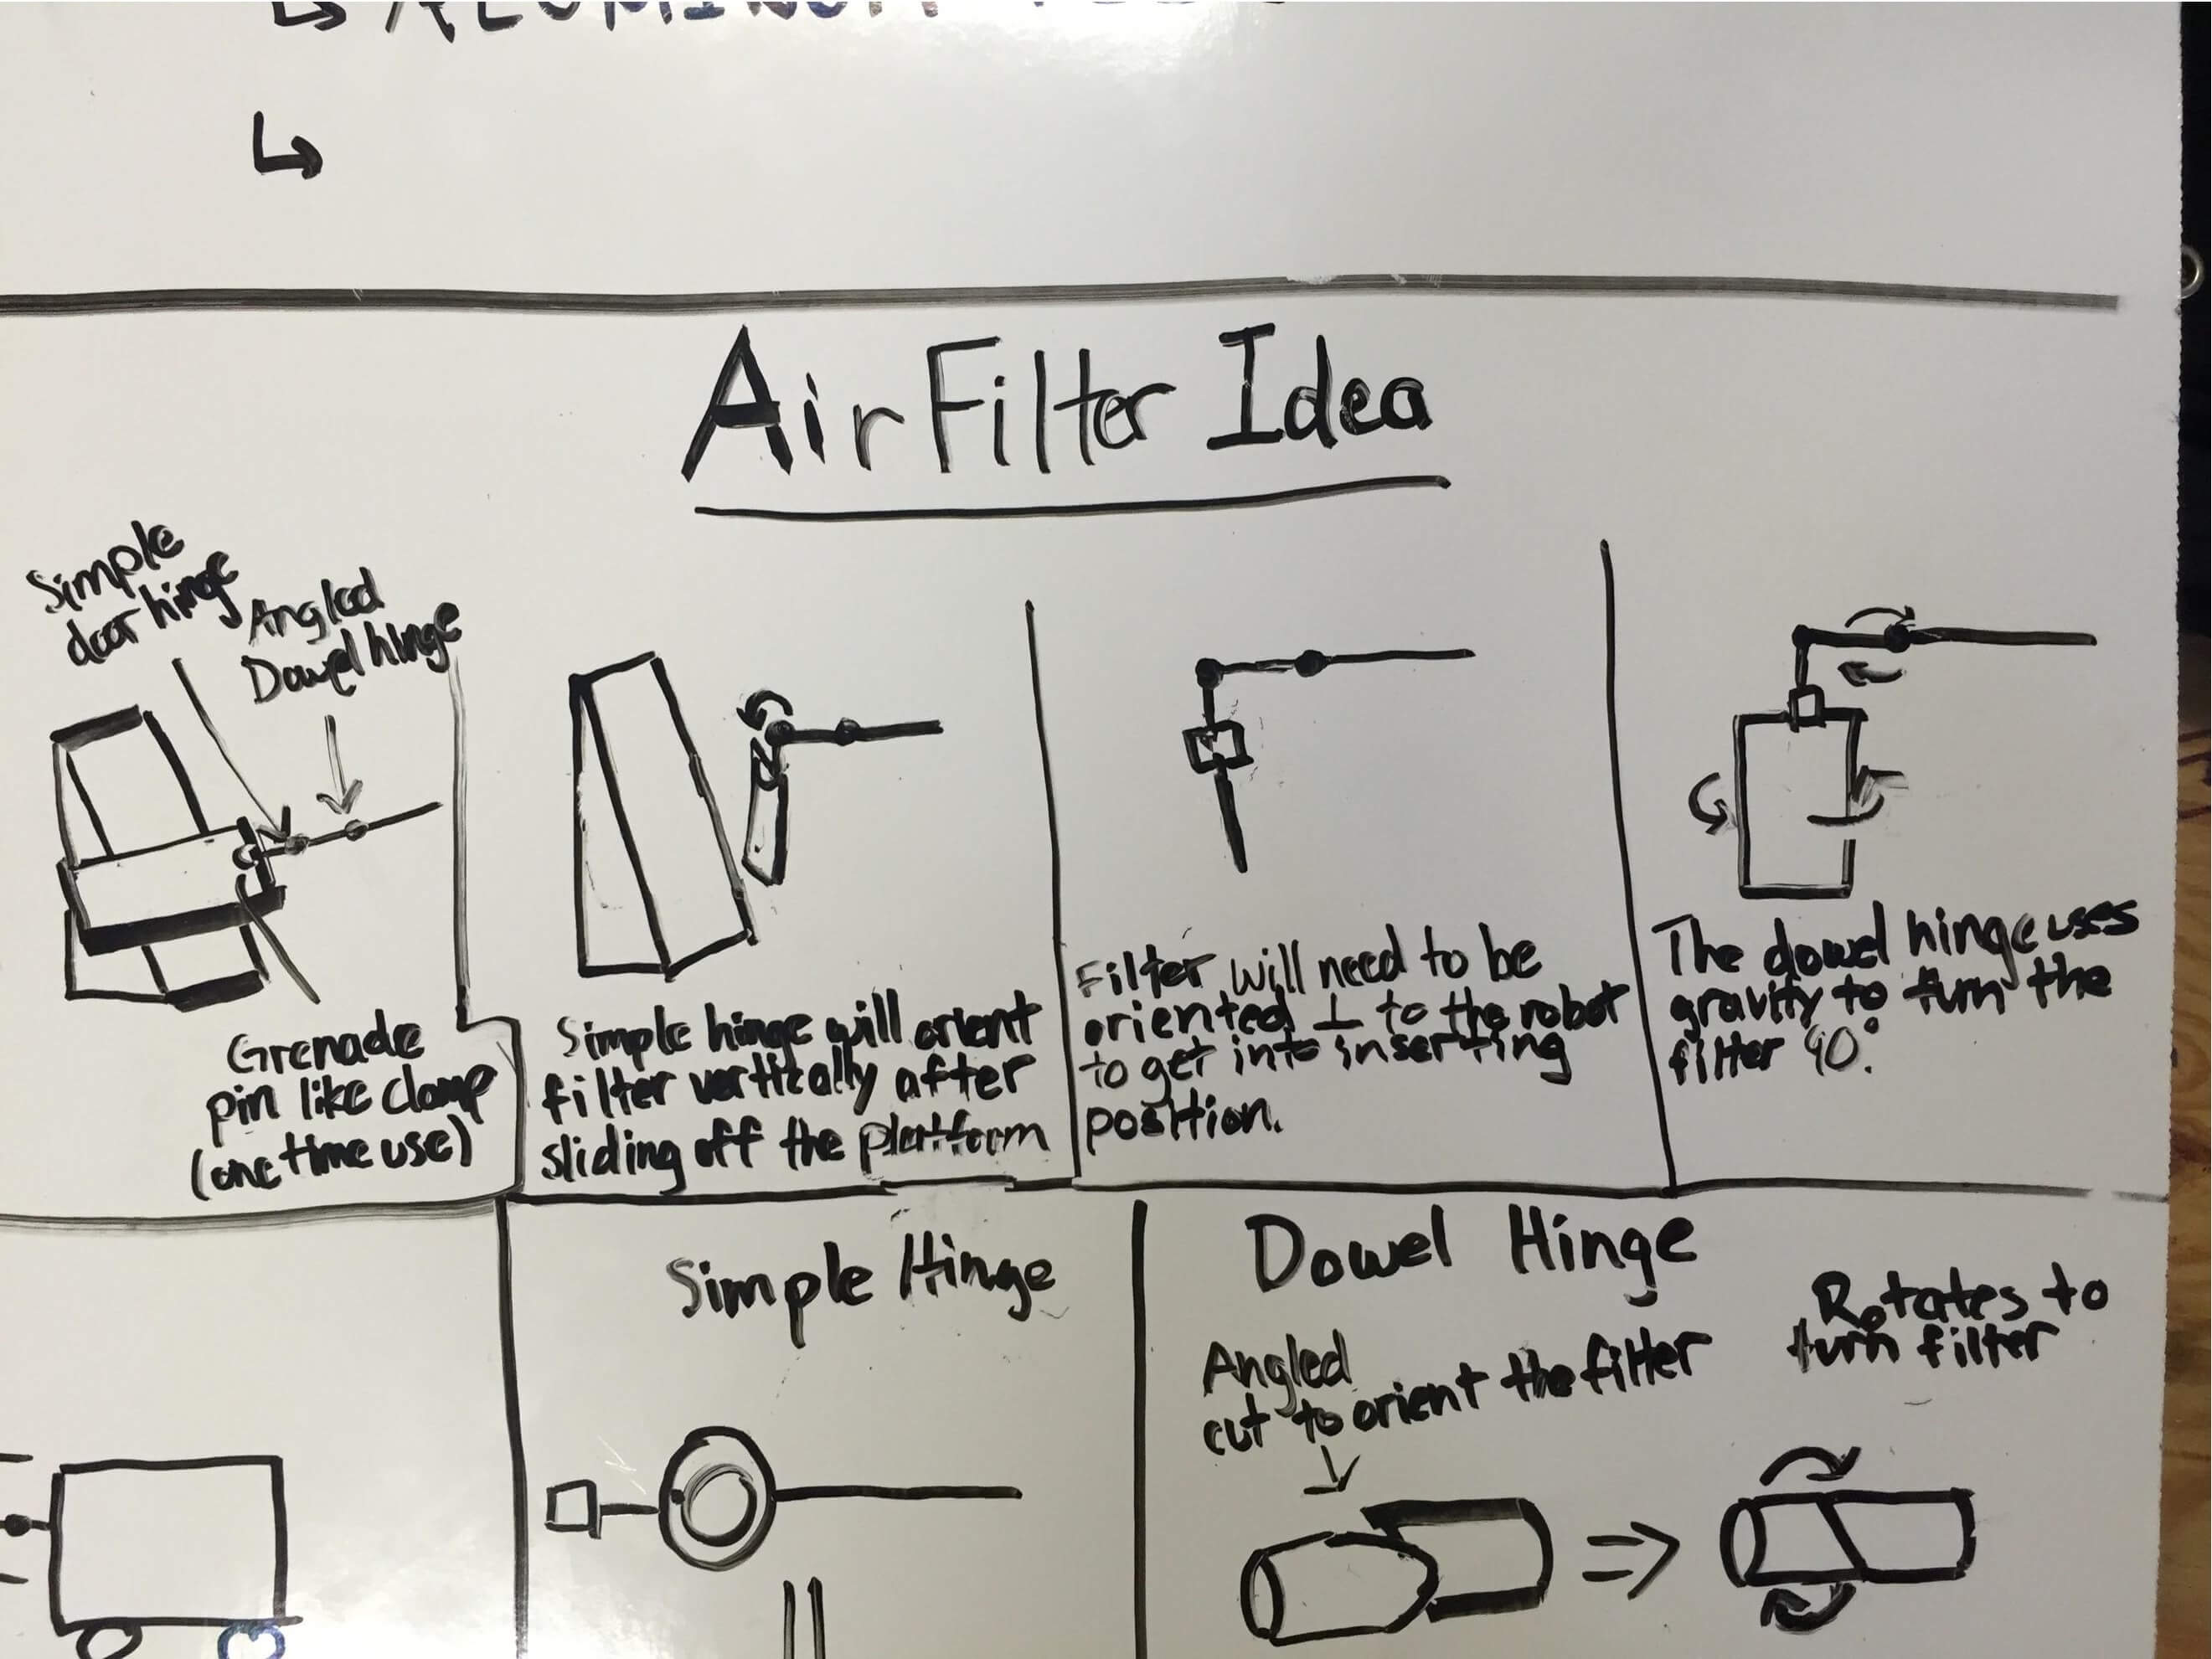 Air Filter Idea
Simple
door hinge
Angled
Dowel hinge
Grenade
pin like clamp
(one time use)
Simple hinge will orient
filter vertically after
sliding off the platform
Filter will need to be
oriented ⊥ to the robot
to get into inserting
position.
The dowel hinge uses
gravity to turn the
filter 90°.
Simple Hinge
Dowel Hinge
Angled
cut to orient the filter
Rotates to
turn filter